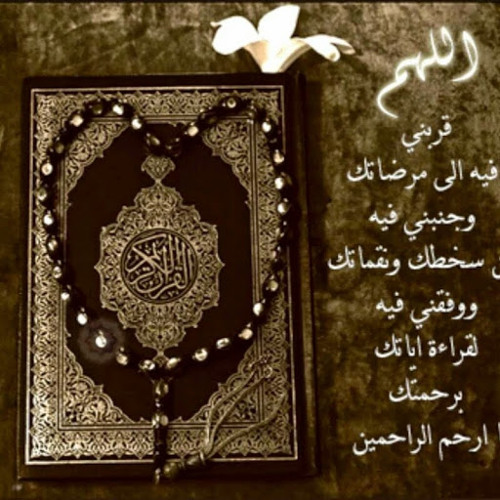 اللهم
قربني
فيه الى مرضاتك
وجنبني فيه
سخطك ونقماتك
ووفقني فيه
لقراءة اياتك
برحمتك
ارحم الراحمين
القرآن الكريم